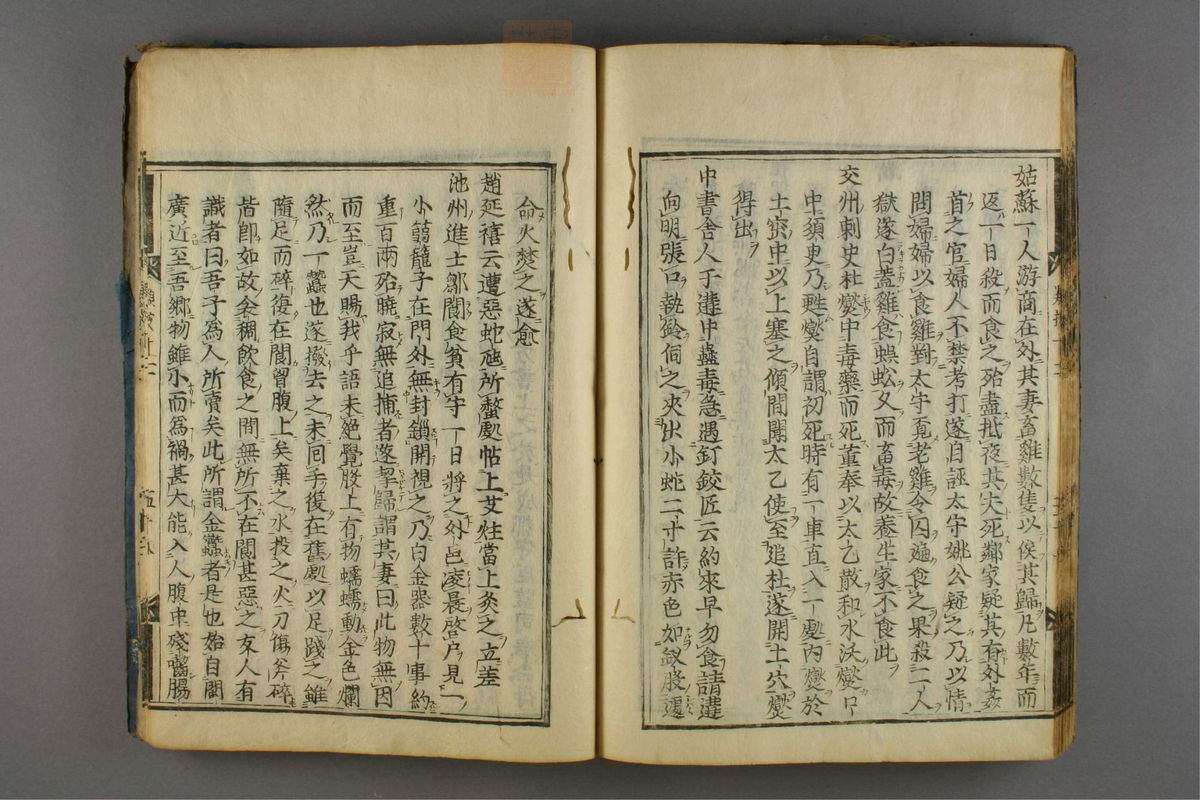 姑蘇一人游商在外其妻畜雞數隻以俟其歸凡數年而
返一日殺而食之殆盡抵夜其夫死鄰家疑其有外姦
首之官婦人不禁考打遂自誣太守姚公疑之乃以情
問婦婦以食雞對太守覓老雞令囚遍食之果殺二人
獄遂白蓋雞食蜈蚣久而畜毒故養生家不食此
交州刺史杜燮中毒藥而死董奉以太乙散和水沃燮口
中須臾乃甦燮自謂初死時有一車直入一處內燮於
土窟中以土塞之傾間聞太乙使至追杜遂開土穴燮
得出
中書舍人于遘中蠱毒急遇釘鉸匠云約來早勿食請遘
向明張口執鈴伺之夾出小蛇二寸許赤色如釵股遽
命火焚之遂愈
趙延禧云遭惡蛇虺所螫處帖上艾炷當上灸之立差
池州進士鄒閬食貧有守一日將之外邑凌晨啓戶見一
小蒻籠子在門外無封鎖開視之乃白金器數十事約
重百兩殆曉寂無追捕者遂挈歸謂其妻曰此物無因
而至豈天賜我乎語未絕覺股上有物蠕蠕動金色爛
然乃一蠶也遂撥去之未回手復在舊處以足踐之雖
隨足而碎復在閬胷腹上矣棄之水投之火刀傷斧碎
皆即如故衾裯飲食之間無所不在閬甚惡之友人有
識者曰吾子爲人所賣矣此所謂金蠶者是也始自閩
廣近至吾鄉物雖小而爲禍甚大能入人腹中殘嚙腸